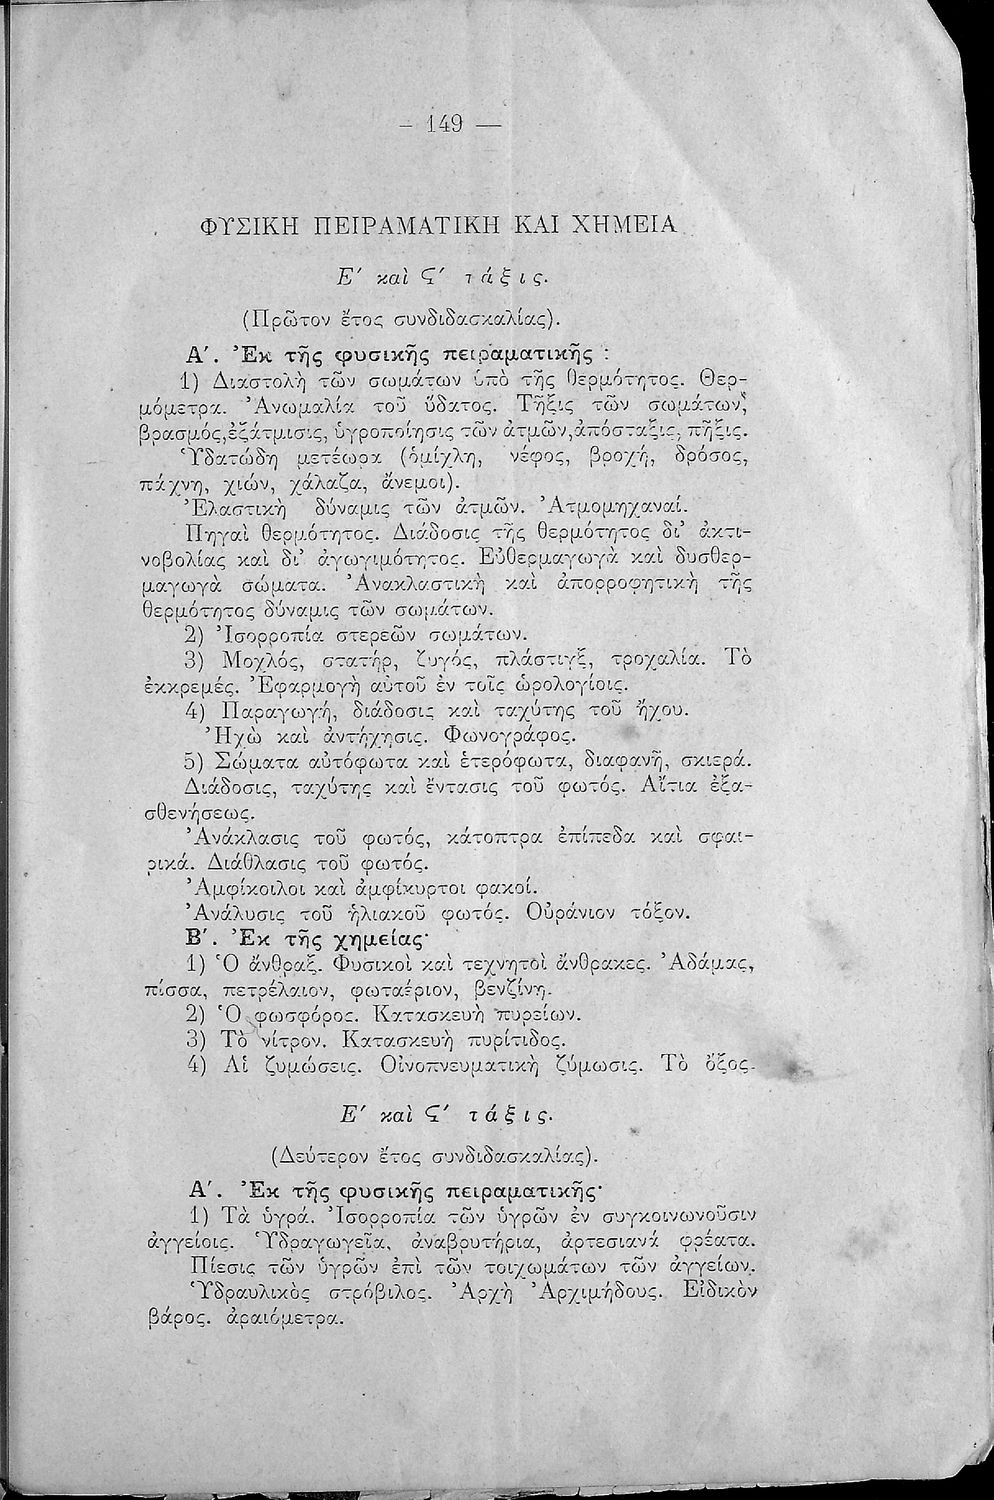 - 149 —
ΦΥΣΙΚΗ ΠΕΙΡΑΜΑΤΙΚΗ ΚΑΙ ΧΗΜΕΙΑ
Ε′ καὶ Ϛ′ τάξις.
(Πρῶτον ἔτος συνδιδασκαλίας).
Α′. Ἐκ τῆς φυσικῆς πειραματικῆς :
1) Διαστολὴ τῶν σωμάτων ὑπὸ τῆς θερμότητος. Θερ-
μόμετρα. Ἀνωμαλία τοῦ ὕδατος. Τῆξις τῶν σωμάτων,
βρασμός,ἐξάτμισις, ὑγροποίησις τῶν ἀτμῶν,ἀπόσταξις, πῆξις.
Ὑδατώδη μετέωρα (ὁμίχλη, νέφος, βροχή, δρόσος,
πάχνη, χιών, χάλαζα, ἄνεμοι).
Ἐλαστικὴ δύναμις τῶν ἀτμῶν. Ἀτμομηχαναί.
Πηγαὶ θερμότητος. Διάδοσις τῆς θερμότητος δι’ ἀκτι-
νοβολίας καὶ δι’ ἀγωγιμότητος. Εὐθερμαγωγὰ καὶ δυσθερ-
μαγωγὰ σώματα. Ἀνακλαστικὴ καὶ ἀπορροφητικὴ τῆς
θερμότητος δύναμις τῶν σωμάτων.
2) Ἰσορροπία στερεῶν σωμάτων.
3) Μοχλός, στατήρ, ζυγός, πλάστιγξ, τροχαλία. Τὸ
ἐκκρεμές. Ἐφαρμογὴ αὐτοῦ ἐν τοῖς ὡρολογίοις.
4) Παραγωγή, διάδοσις καὶ ταχύτης τοῦ ἤχου.
Ἠχὼ καὶ ἀντήχησις. Φωνογράφος.
5) Σώματα αὐτόφωτα καὶ ἑτερόφωτα, διαφανῆ, σκιερά.
Διάδοσις, ταχύτης καὶ ἔντασις τοῦ φωτός. Αἴτια ἐξα-
σθενήσεως.
Ἀνάκλασις τοῦ φωτός, κάτοπτρα ἐπίπεδα καὶ σφαι-
ρικά. Διάθλασις τοῦ φωτός.
Ἀμφίκοιλοι καὶ ἀμφίκυρτοι φακοί.
Ἀνάλυσις τοῦ ἡλιακοῦ φωτός. Οὐράνιον τόξον.
Β′. Ἐκ τῆς χημείας·
1) Ὁ ἄνθραξ. Φυσικοὶ καὶ τεχνητοὶ ἄνθρακες. Ἀδάμας,
πίσσα, πετρέλαιον, φωταέριον, βενζίνη.
2) Ὁ φωσφόρος. Κατασκευὴ πυρείων.
3) Τὸ νίτρον. Κατασκευὴ πυρίτιδος.
4) Αἱ ζυμώσεις. Οἰνοπνευματικὴ ζύμωσις. Τὸ ὄξος.
Ε′ καὶ Ϛ′ τάξις.
(Δεύτερον ἔτος συνδιδασκαλίας).
Α′. Ἐκ τῆς φυσικῆς πειραματικῆς·
1) Τὰ ὑγρά. Ἰσορροπία τῶν ὑγρῶν ἐν συγκοινωνοῦσιν
ἀγγείοις. Ὑδραγωγεῖα, ἀναβρυτήρια, ἀρτεσιανὰ φρέατα.
Πίεσις τῶν ὑγρῶν ἐπὶ τῶν τοιχωμάτων τῶν ἀγγείων.
Ὑδραυλικὸς στρόβιλος. Ἀρχὴ Ἀρχιμήδους. Εἰδικὸν
βάρος. ἀραιόμετρα.